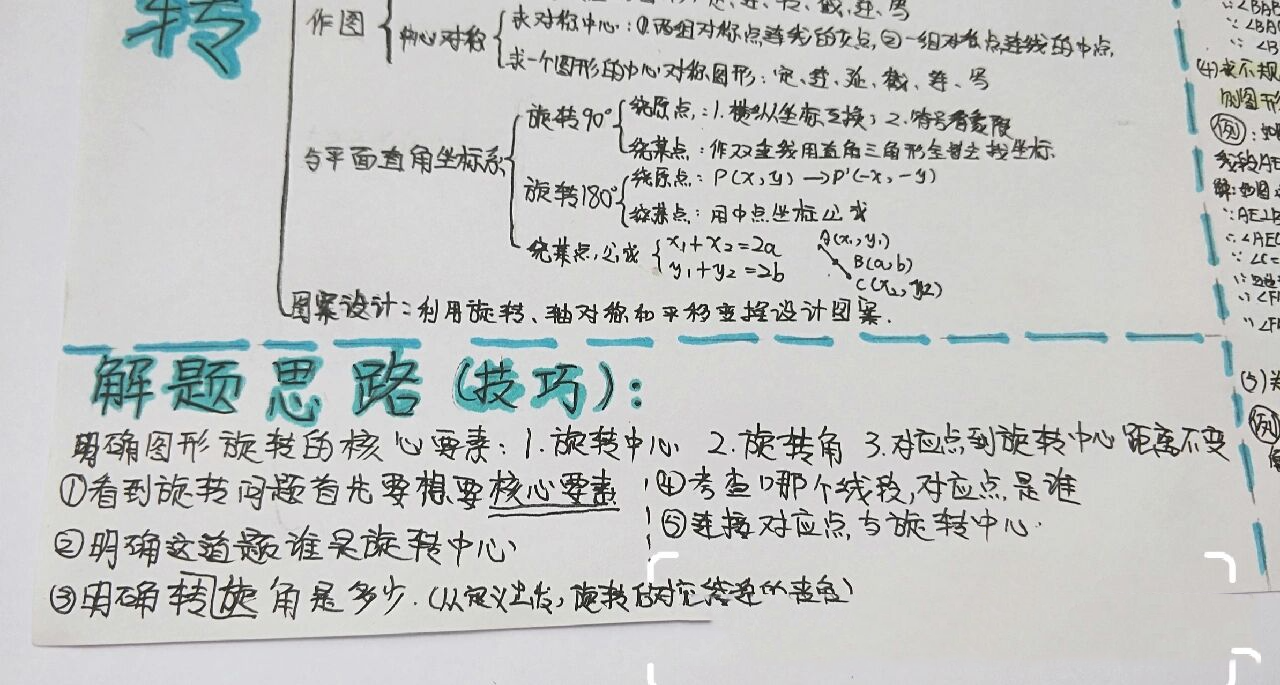 转
定、连、转、截、连、写
作图
中心对称
求对称中心：①两组对称点连线的交点,②一组对称点连线的中点.
求一个图形的中心对称图形：定、连、延、截、连、写
与平面直角坐标系
旋转90°
绕原点：1.横纵坐标互换；2.符号看象限
绕某点：作双垂线用直角三角形全等去找坐标
旋转180°
绕原点：P(x,y)→P'(-x,-y)
绕某点：用中点坐标公式
绕某点,公式
x₁+x₂=2a
y₁+y₂=2b
A(x₁,y₁)
B(a,b)
C(x₂,y₂)
图案设计：利用旋转、轴对称和平移变换设计图案.
解题思路(技巧)：
明确图形旋转的核心要素：1.旋转中心 2.旋转角 3.对应点到旋转中心距离不变
①看到旋转问题首先要想要核心要素
②明确这道题谁是旋转中心
③明确转旋角是多少.(从定义出发,旋转
④考查哪个线段,对应点是谁
⑤连接对应点与旋转中心.
∵∠BAE
∴∠BA
∵∠B
(4)
例
线段AE
解:如图
∵AE⊥
∴∠AE
∵∠C=
∴∠F
(5)
例